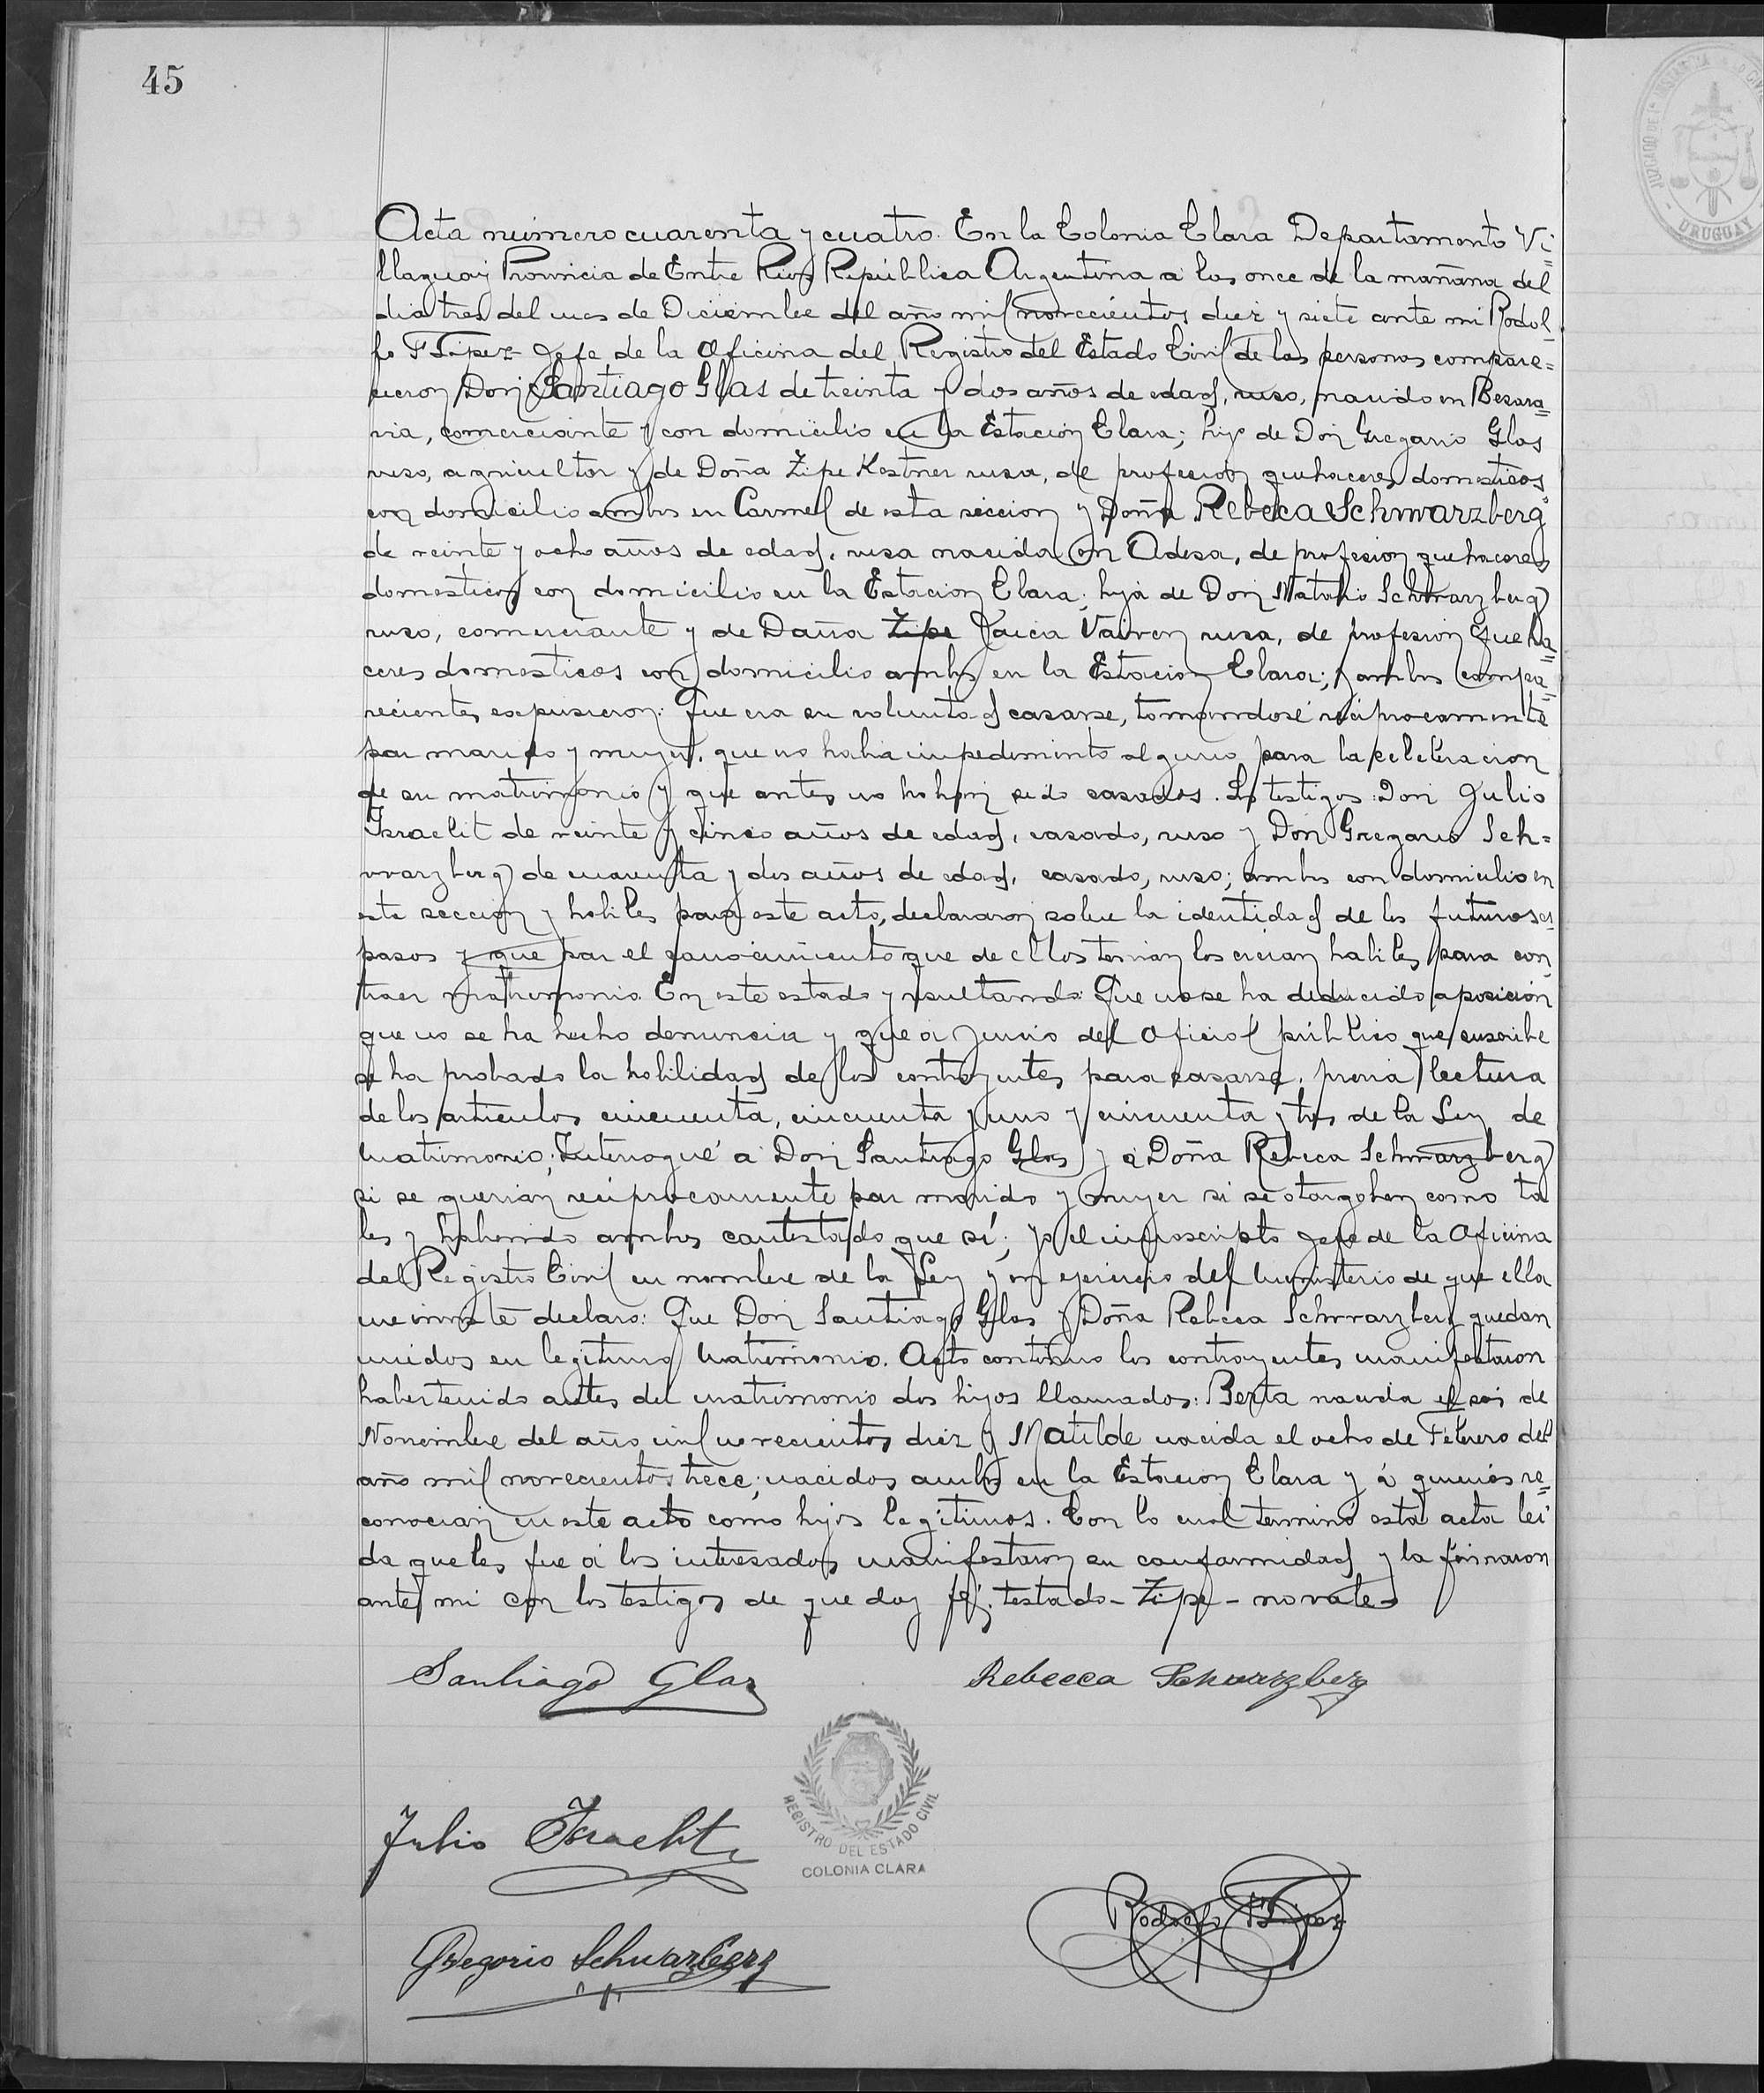 45
Acta número cuarenta y cuatro. En la Colonia Clara Departamento Vi=
llaguay Provincia de Entre Rios República Argentina á las once de la mañana del
dia tres del mes de Diciembre del año mil novecientos diez y siete ante mi Rodol
fo F Lipez Jefe de la Oficina del Registro del Estado Civil de las personas compare=
cieron Don Santiago Glas de treinta y dos años de edad, ruso, nacido en Besara=
via, comerciante y con domicilio en la Estación Clara; hijo de Don Gregorio Glas
ruso, agricultor y de Doña Zipe Kestner rusa, de profesion quehaceres domesticos
con domicilio ambos en Carmel de esta seccion y Doña Rebeca Schwarzberg
de veinte y ocho años de edad, rusa nacida en Odesa, de profesion quehaceres
domesticos con domicilio en la Estacion Clara; hija de Don Natalio Schwarzberg
ruso, comerciante y de Doña Zipe Vaiven rusa, de profesion queha=
ceres domesticos con domicilio ambos en la Estacion Clara; y ambos compa=
recientes expusieron: Que era su voluntad casarse, tomandose reciprocamente
por marido y mujer, que no habia impedimento alguno para la celebracion
de su matrimonio y que antes no habian sido casados. Los testigos: Don Julio
Israelit de veinte y cinco años de edad, casado, ruso y Don Gregorio Sch=
warzberg de cuarenta y dos años de edad, casado, ruso; ambos con domicilio en
esta seccion y habiles para este acto, declararon sobre la identidad de los futuros es=
posos y que por el conocimiento que de ellos tenian los creian habiles para con
traer matrimonio. En este estado y resultando: Que no se ha deducido oposición
que no se ha hecho denuncia y que a juicio del Oficial público que suscribe
se ha probado la habilidad de los contrayentes para casarse, previa lectura
de los articulos cincuenta, cincuenta y uno y cincuenta y tres de la Ley de
Matrimonio; Interrogué á Don Santiago Glas y á Doña Rebeca Schwarzberg
si se querian reciprocamente por marido y mujer si se otorgaban como ta
les y habiendo ambos contestado que sí; yo el infrascripto Jefe de la Oficina
del Registro Civil en nombre de la Ley y en ejercicio del Ministerio de que ella
me inviste declaro: Que Don Santiago Glas y Doña Rebeca Schwarzberg quedan
unidos en legitimo Matrimonio. Acto continuo los contrayentes manifestaron
haber tenido antes del matrimonio dos hijos llamados: Berta nacida el seis de
Noviembre del año mil novecientos diez y Matilde nacida el ocho de Febrero del
año mil novecientos trece; nacidos ambos en la Estacion Clara y á quienes re=
conocian en este acto como hijos legítimos. Con lo cual terminó esta acta lei
da que les fue á los interesados manifestaron su conformidad y la firmaron
ante mi con los testigos de que doy fé. testado - Zipe - no vale
Santiago Glas
Rebecca Schwarzberg
Julio Israelit
REGISTRO DEL ESTADO CIVIL
COLONIA CLARA
Rodolfo F Lipez
Gregorio Schwarzberg
JUZGADO DE 1ª INSTANCIA
URUGUAY